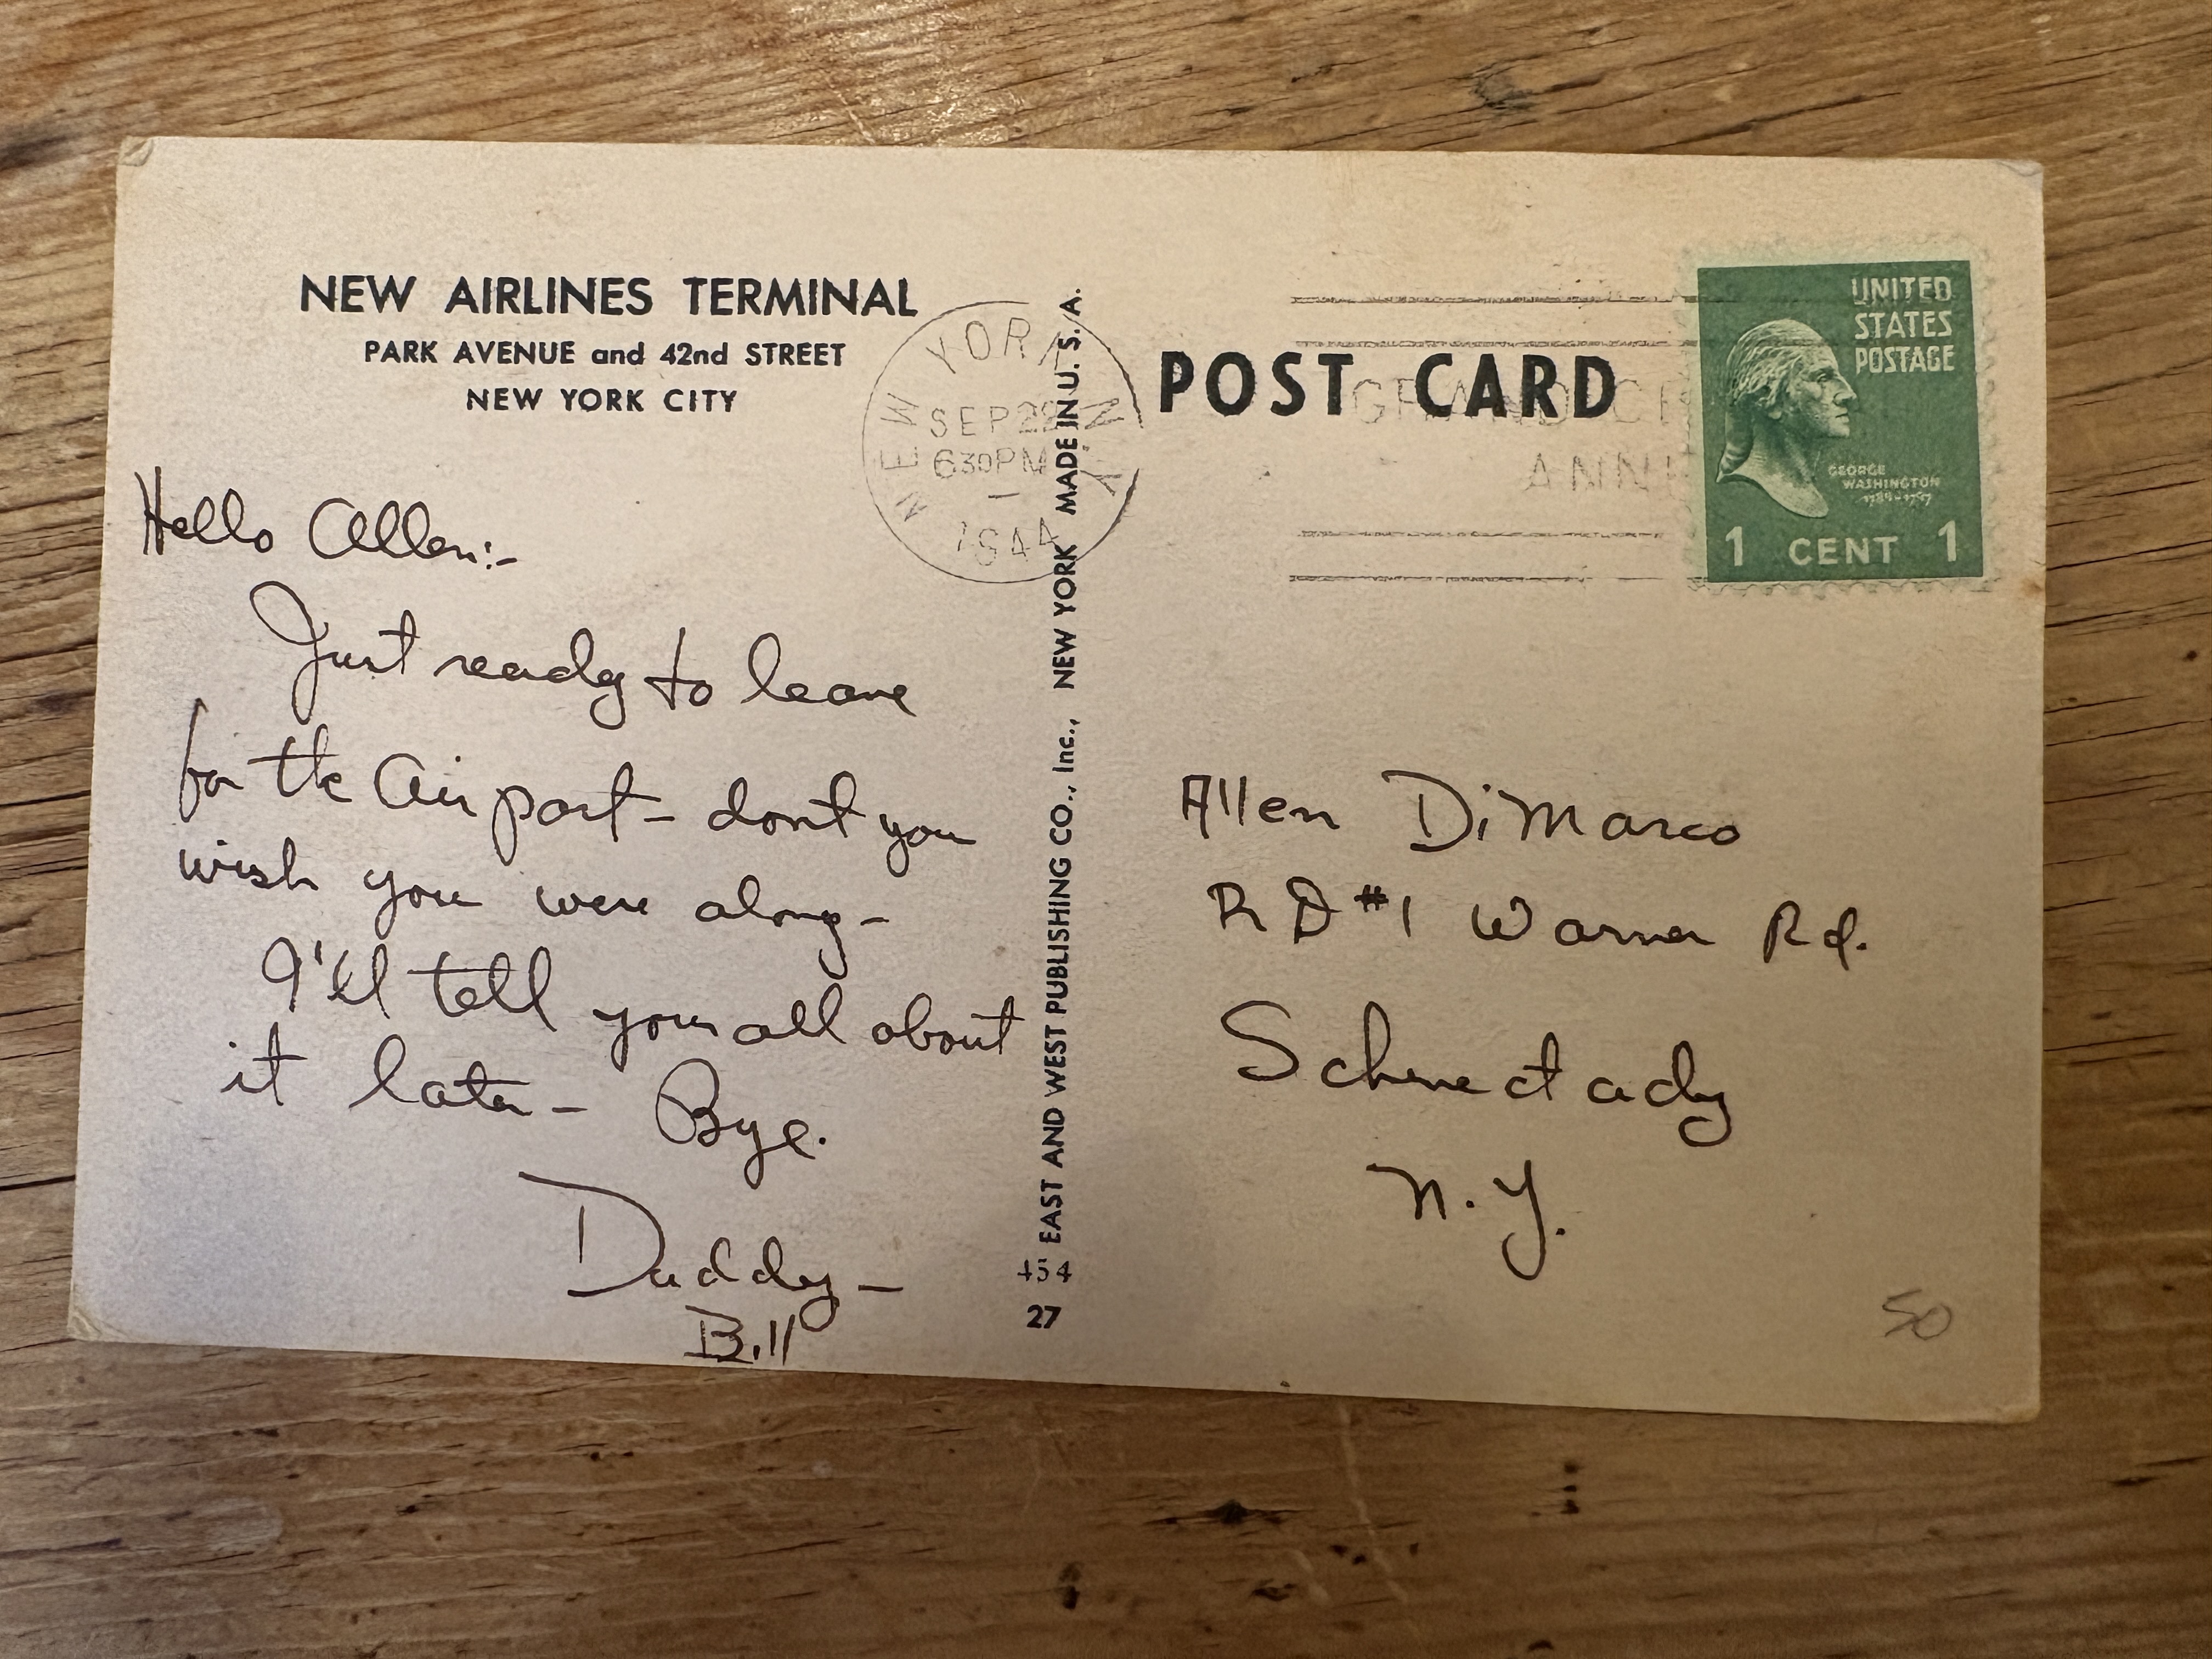 NEW AIRLINES TERMINAL
PARK AVENUE and 42nd STREET
NEW YORK CITY
Hello Allen:-
Just ready to leave
for the Airport - dont you
wish you were along -
I'll tell you all about
it later - Bye.
Daddy -
Bill
NEW YORK N.Y.
SEP
630PM
1
1944
EAST AND WEST PUBLISHING CO., Inc., NEW YORK MADE IN U. S. A.
454
27
POST CARD
GRAND
UNITED
STATES
POSTAGE
GEORGE
WASHINGTON
1789-1797
1 CENT 1
Allen DiMarco
RD #1 Warner Rd.
Schenectady
N.Y.
50